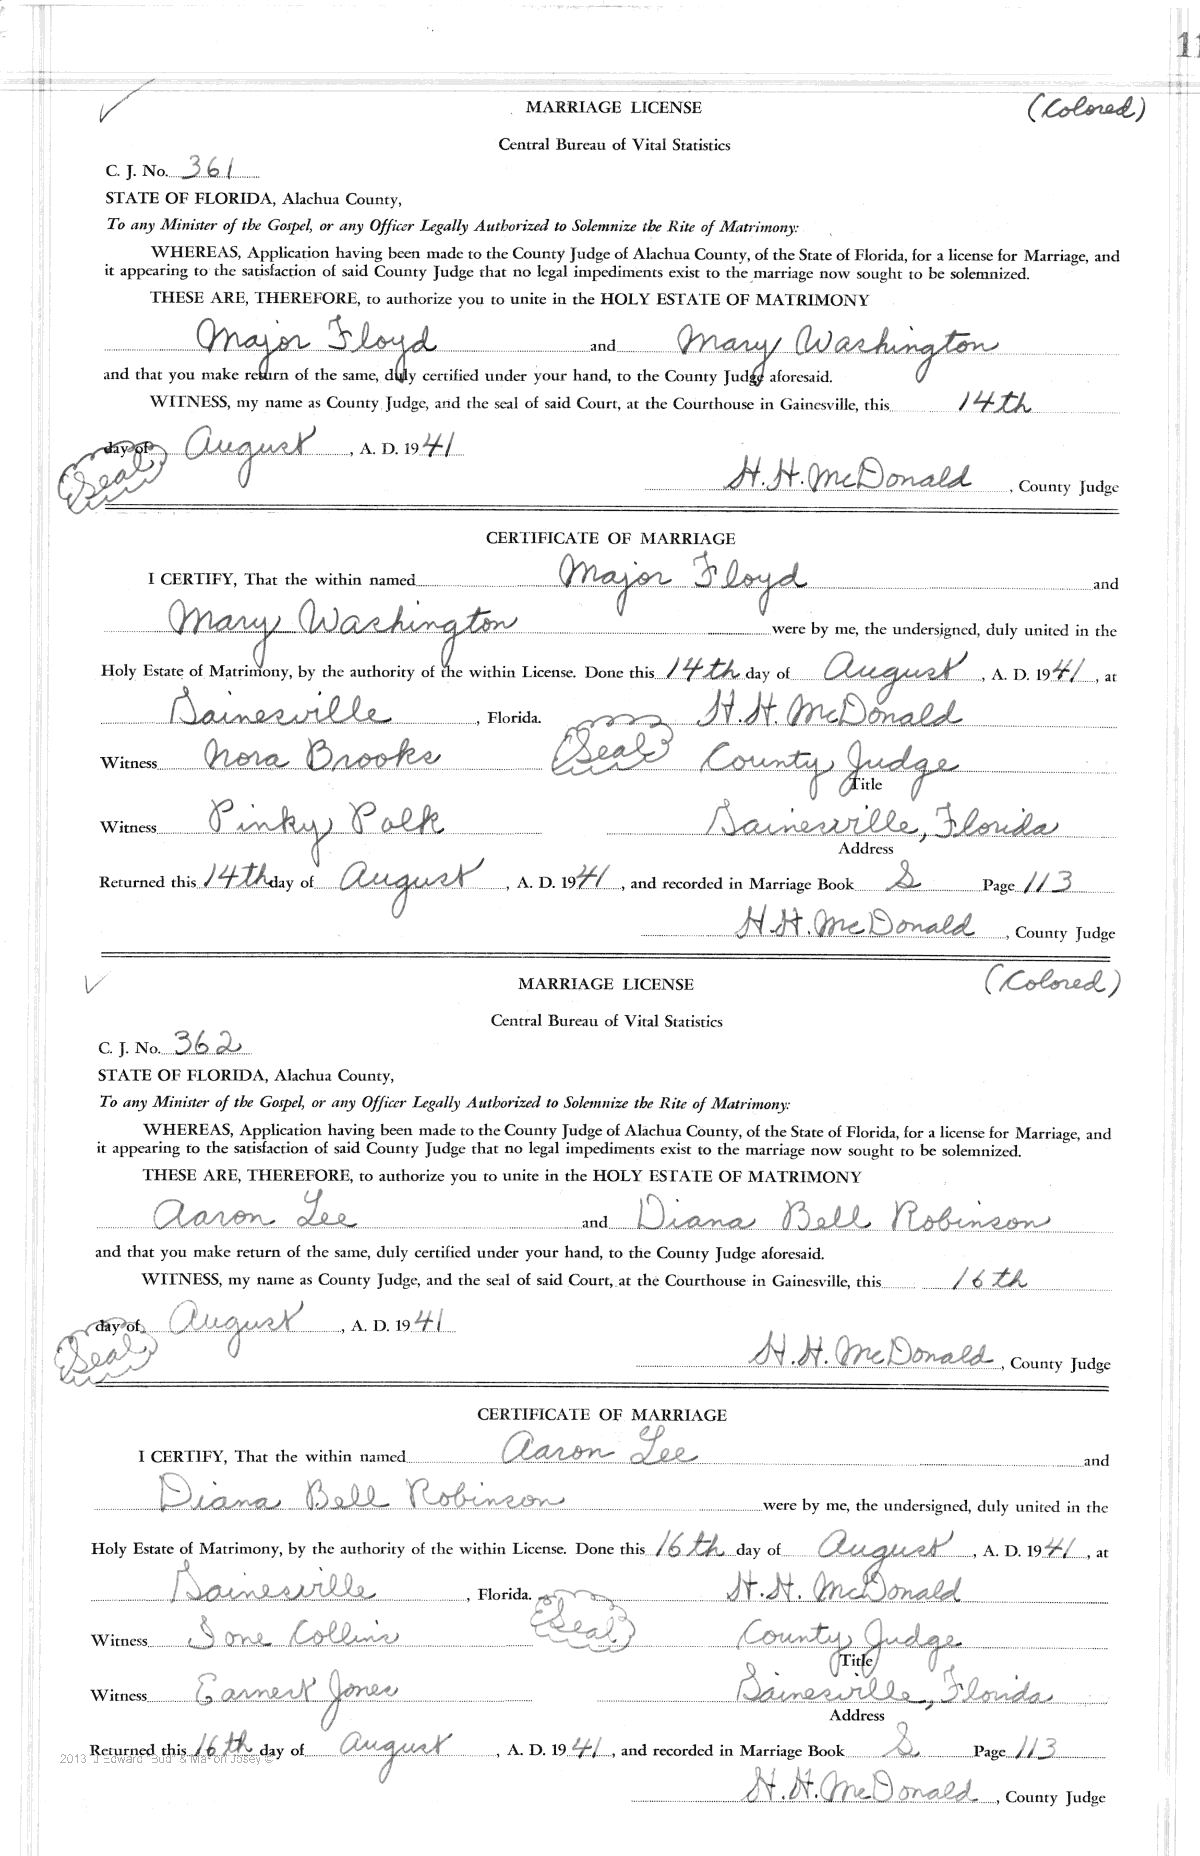 11
MARRIAGE LICENSE (Colored)
Central Bureau of Vital Statistics
C. J. No. 361
STATE OF FLORIDA, Alachua County,
To any Minister of the Gospel, or any Officer Legally Authorized to Solemnize the Rite of Matrimony:
WHEREAS, Application having been made to the County Judge of Alachua County, of the State of Florida, for a license for Marriage, and
it appearing to the satisfaction of said County Judge that no legal impediments exist to the marriage now sought to be solemnized.
THESE ARE, THEREFORE, to authorize you to unite in the HOLY ESTATE OF MATRIMONY
Major Floyd and Mary Washington
and that you make return of the same, duly certified under your hand, to the County Judge aforesaid.
WITNESS, my name as County Judge, and the seal of said Court, at the Courthouse in Gainesville, this 14th
day of August, A. D. 1941
(Seal) H. H. McDonald, County Judge
CERTIFICATE OF MARRIAGE
I CERTIFY, That the within named Major Floyd and
Mary Washington were by me, the undersigned, duly united in the
Holy Estate of Matrimony, by the authority of the within License. Done this 14th day of August, A. D. 1941, at
Gainesville, Florida. H. H. McDonald
Witness Nora Brooks (Seal) County Judge
Title
Witness Pinky Polk Gainesville, Florida
Address
Returned this 14th day of August, A. D. 1941, and recorded in Marriage Book S Page 113
H. H. McDonald, County Judge
MARRIAGE LICENSE (Colored)
Central Bureau of Vital Statistics
C. J. No. 362
STATE OF FLORIDA, Alachua County,
To any Minister of the Gospel, or any Officer Legally Authorized to Solemnize the Rite of Matrimony:
WHEREAS, Application having been made to the County Judge of Alachua County, of the State of Florida, for a license for Marriage, and
it appearing to the satisfaction of said County Judge that no legal impediments exist to the marriage now sought to be solemnized.
THESE ARE, THEREFORE, to authorize you to unite in the HOLY ESTATE OF MATRIMONY
Aaron Lee and Diana Bell Robinson
and that you make return of the same, duly certified under your hand, to the County Judge aforesaid.
WITNESS, my name as County Judge, and the seal of said Court, at the Courthouse in Gainesville, this 16th
day of August, A. D. 1941
(Seal) H. H. McDonald, County Judge
CERTIFICATE OF MARRIAGE
I CERTIFY, That the within named Aaron Lee and
Diana Bell Robinson were by me, the undersigned, duly united in the
Holy Estate of Matrimony, by the authority of the within License. Done this 16th day of August, A. D. 1941, at
Gainesville, Florida. H. H. McDonald
Witness Ione Collins (Seal) County Judge
Title
Witness Earnest Jones Gainesville, Florida
Address
Returned this 16th day of August, A. D. 1941, and recorded in Marriage Book S Page 113
2013 J Edward "Bud" & Marion Josey ©
H. H. McDonald, County Judge